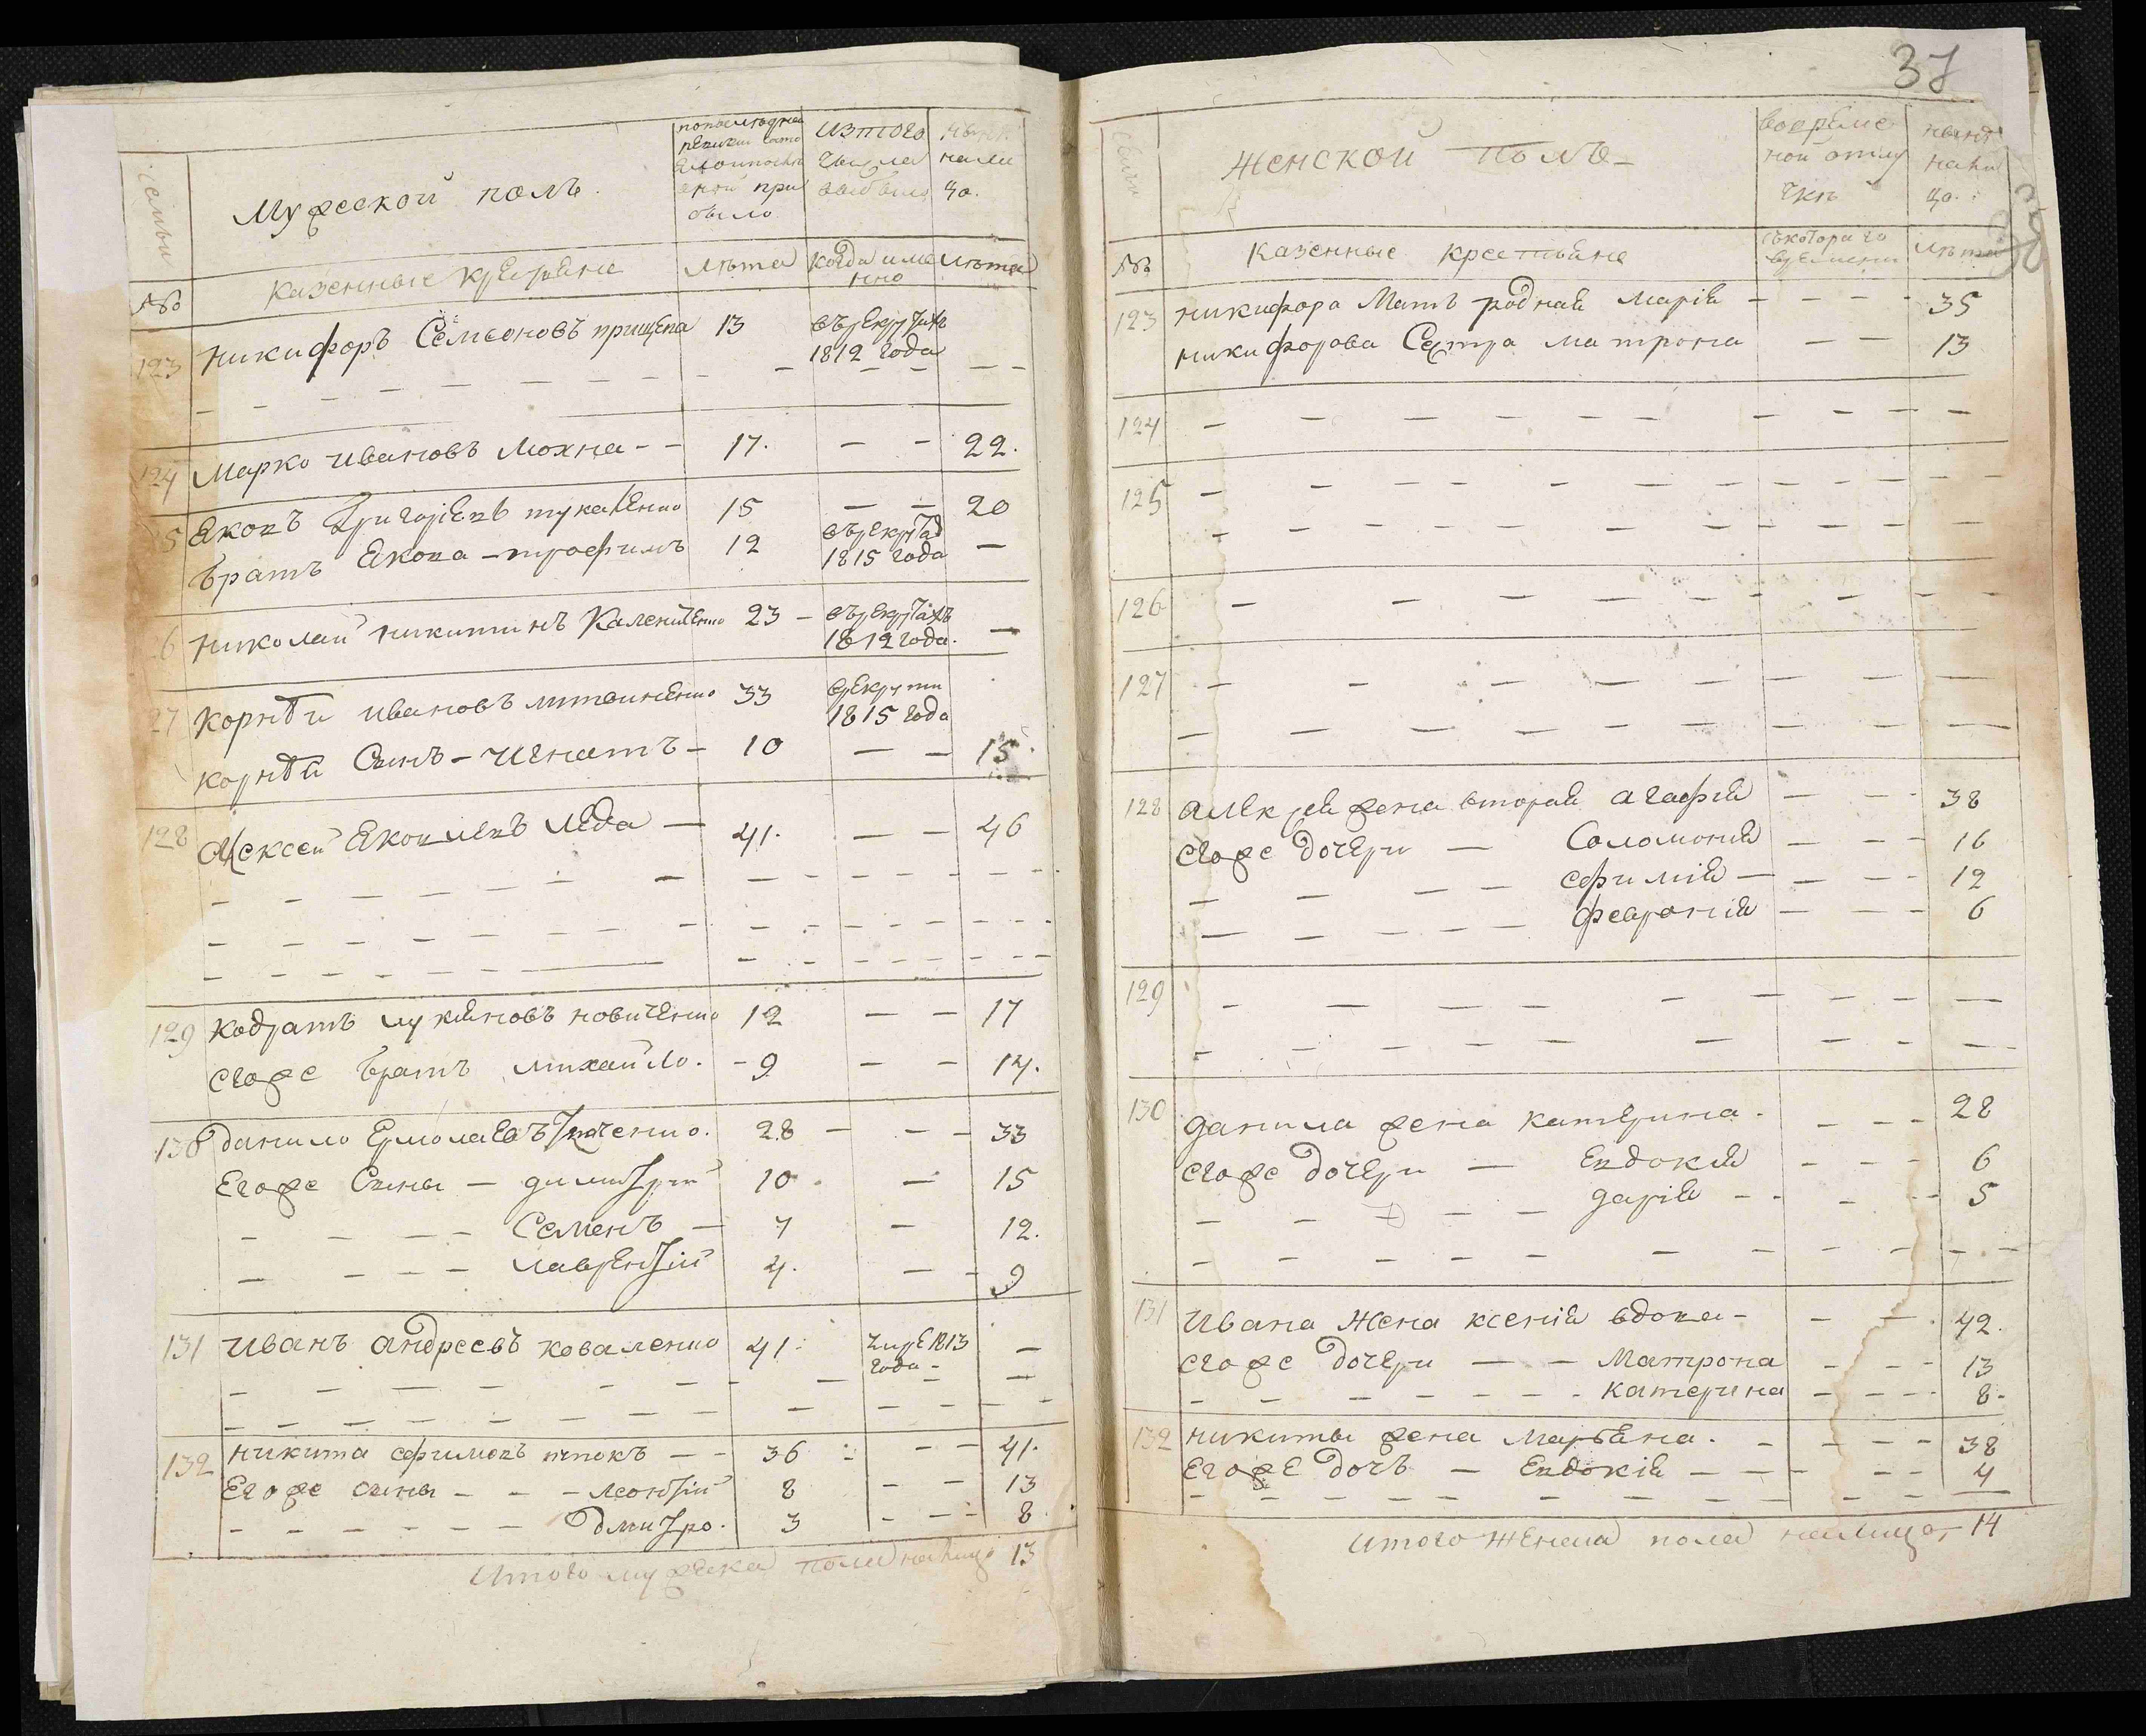 37
38
семьи
Мужеской полъ.
по последней ревизии состояло и после оной прибыло
изтого числа выбыло
ныне налицо.
№
казенные крестьяне
лета
когда имено
лета
123 Никифоръ Семеоновъ прищепа 13 въ рекрутахъ 1812 года
124 Марко Ивановъ Мохна 17. 22.
5 Яковъ Григорiевъ тукаленко 15 20
братъ Якова трофимъ 12 въ рекрутах 1815 года
6 Николай Никитинъ Калениченко 23 въ рекрутахъ 1812 года.
27 Корней Ивановъ литвиненко 33 в рекрути 1815 года
корнея Сынъ Игнатъ 10 15
128 Алексей Яковлевъ леда 41. 46
129 Кодратъ лукяновъ новиченко 12 17
егоже братъ михайло. 9 14.
130 данило Ермолаевъ ткаченко. 28 33
Егоже Сыны димитрий 10 15
Семенъ 7 12.
лаврентiй 4. 9
131 Иванъ Андреевъ коваленко 41 умре 1813 года
132 Никита ефимовъ титокъ 36 41.
Егоже сыны леонтiй 8 13
дмитро. 3 8.
Итого мужеска пола налицо 13
семьи
Женской полъ
во временной отлучке
ныне налицо.
№
казенные крестьяне
съ котораго времени
лета
123 Никифора Мать родная марiя 35
никифорова Сестра матрона 13
124
125
126
127
128 алексея жена вторая агафiя 38
егоже дочери Соломония 16
ефимiя 12
феврония 6
129
130 данила жена катерина. 28
егоже дочери Евдокiя 6
дарiя 5
131 Ивана Жена ксенiя вдова 42.
егоже дочери Матрона 13
катерина 8.
132 никиты жена марьяна. 38
Егоже дочъ Евдокiя 4
Итого Женска пола налицо 14